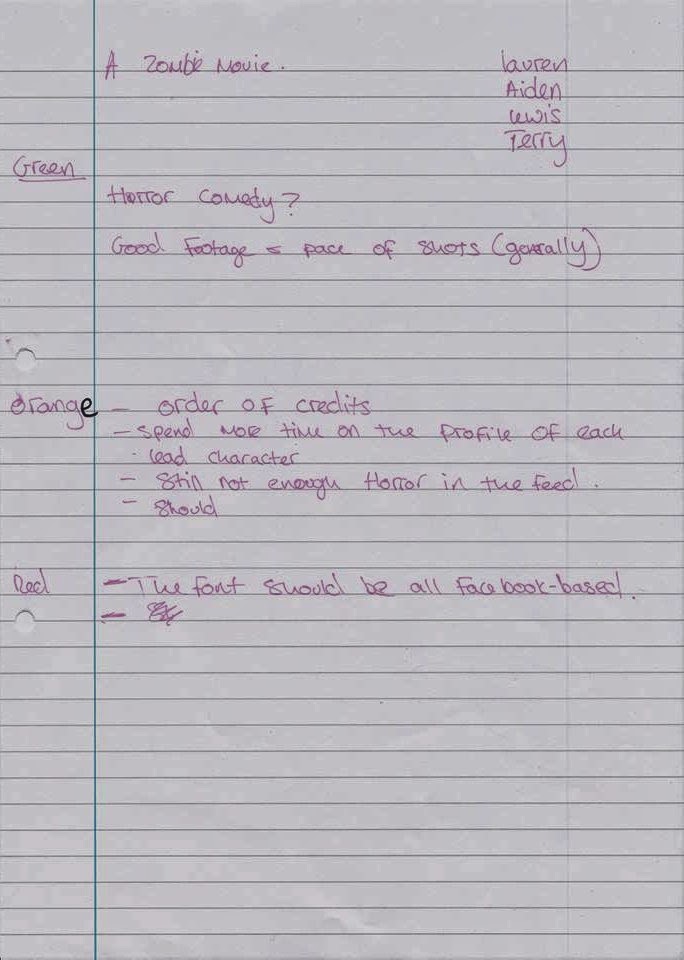 A Zombie Movie.
Lauren
Aiden
Lewis
Terry
Green
Horror Comedy?
Good Footage = pace of shots (generally)
Orange - order of credits
- spend more time on the profile of each
lead character
- Still not enough Horror in the feed.
- Should
Red - The font should be all facebook-based.
-